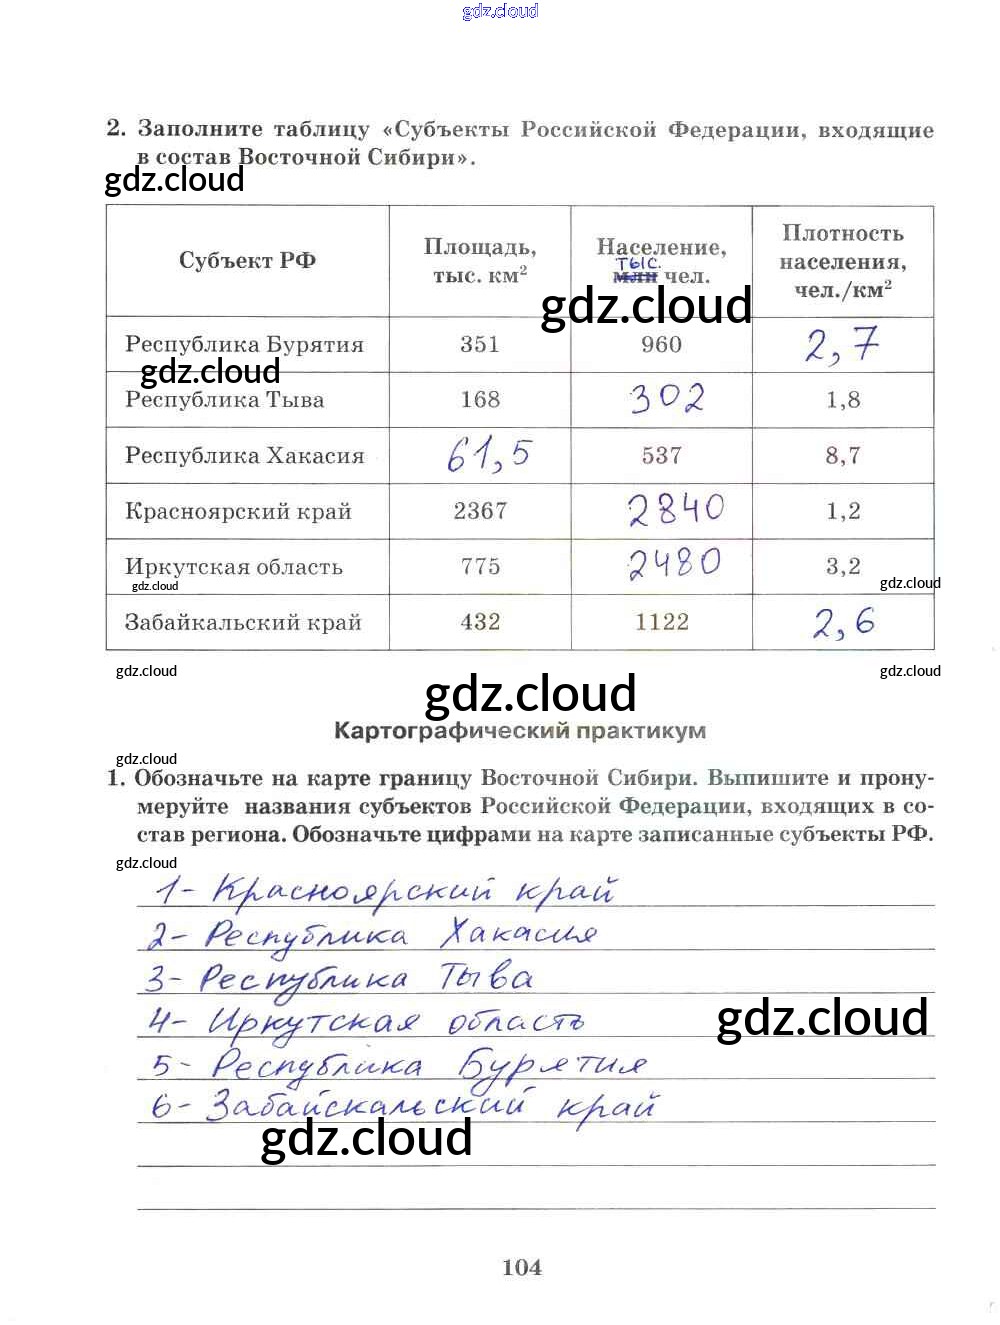 gdz.cloud
2. Заполните таблицу «Субъекты Российской Федерации, входящие
в состав Восточной Сибири».
gdz.cloud
Субъект РФ
Площадь,
тыс. км²
Население,
тыс.
млн чел.
Плотность
населения,
чел./км²
gdz.cloud
Республика Бурятия 351 960 2,7
gdz.cloud
Республика Тыва 168 302 1,8
Республика Хакасия 61,5 537 8,7
Красноярский край 2367 2840 1,2
Иркутская область 775 2480 3,2
gdz.cloud gdz.cloud
Забайкальский край 432 1122 2,6
gdz.cloud gdz.cloud gdz.cloud
Картографический практикум
gdz.cloud
1. Обозначьте на карте границу Восточной Сибири. Выпишите и прону-
меруйте названия субъектов Российской Федерации, входящих в со-
став региона. Обозначьте цифрами на карте записанные субъекты РФ.
gdz.cloud
1- Красноярский край
2- Республика Хакасия
3- Республика Тыва
4- Иркутская область
gdz.cloud
5- Республика Бурятия
6- Забайскальский край
gdz.cloud
104